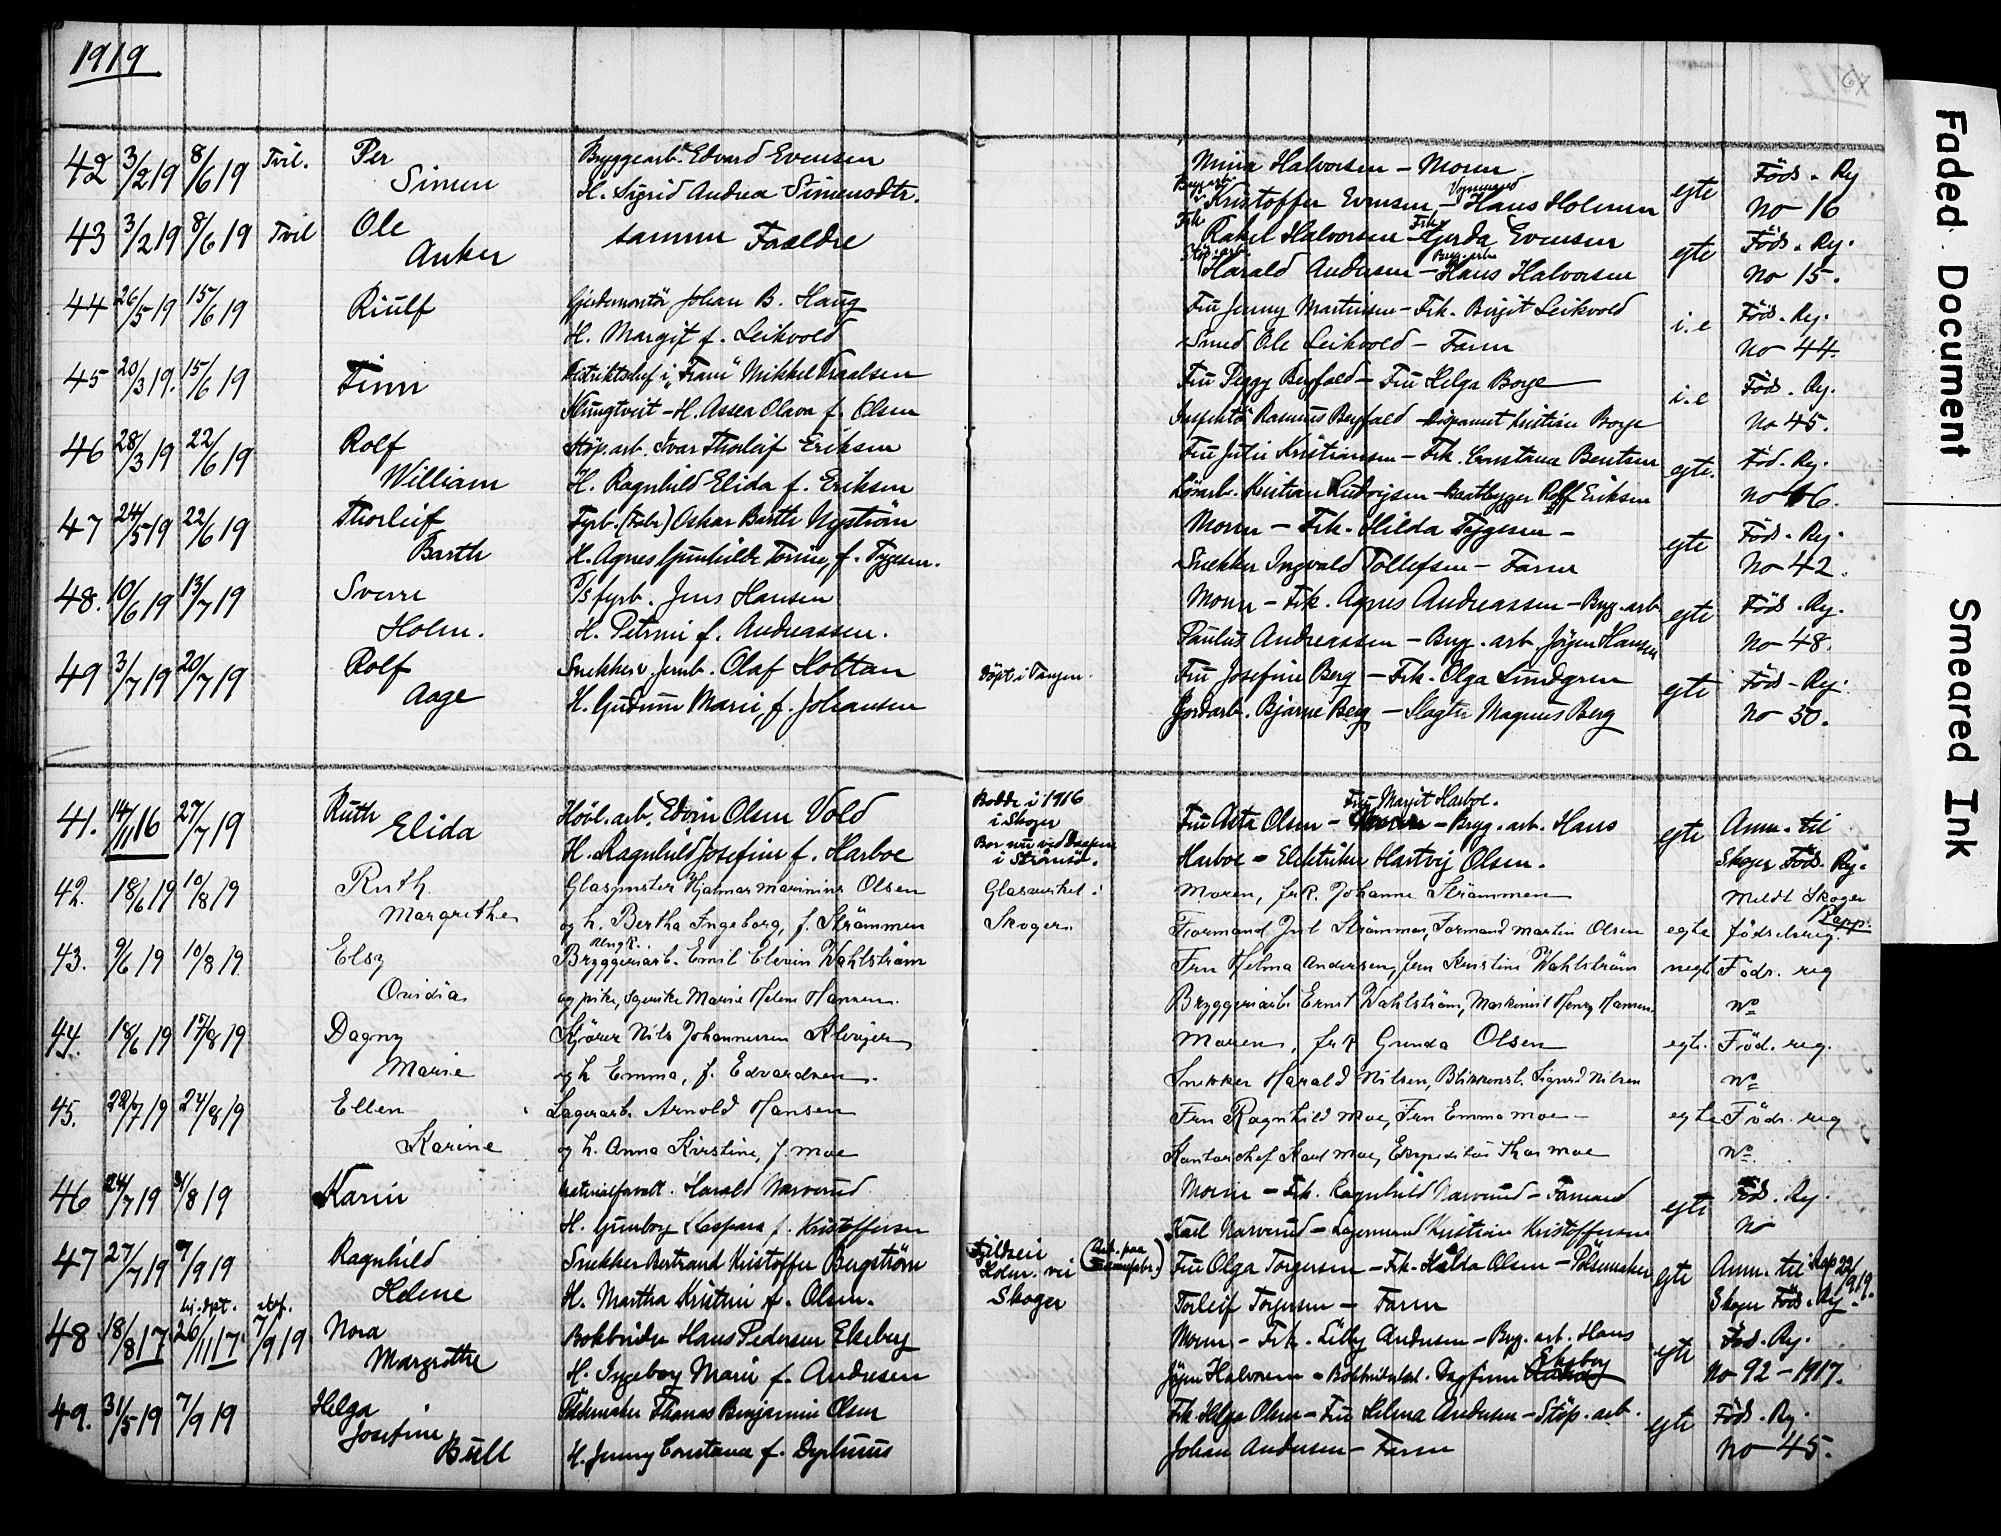 1919
42 3/2 19 8/6 19 Tvil. Per Bryggearb. Edvard Evensen Halvorsen - Moren egte Föds. Rg
Simen H. Sigrid Andrea Simensdtr. Bryg.arb. Kristoffer Evensen - Hans Holmen No 16
43 3/2 19 8/6 19 Tvil Ole samme Forældre Frk Rakel Halvorsen - Frk Gerda Evensen egte Föds. Rg.
Anker Stöp.arb. Harald Andersen - Bryg.arb. Hans Halvorsen No 15.
44 26/5 19 15/6 19 Riulf Johan B. Haug Fru Jenny Martinsen - Frk. Birgit Leikvold i.e Föds. Rg.
H. Margit f. Leikvold Smed Ole Leikvold - Faren No 44
45 20/3 19. 15/6 19 Finn Distriktschef i "Fram" Mikkel Traalsen Fru Peggy Bergfald - Fru Helga Borge i.e Föds. Rg.
H. Assea Olava f. Olsen Inspektör Rasmus Bergfald - Disponent Kristian Borge No 45.
46 28/3 19 22/6 19 Rolf Stöp.arb. Ivar Thorleif Eriksen Fru Julie Kristiansen - Frk. Constance Bentsen egte. Föd. Rg.
William H. Ragnhild Elida f. Eriksen Kristian Ludvigsen - Baatbygger Rolf Eriksen No 46.
47 24/5 19 22/6 19 Thorleif Fyrb. (Fabr) Oskar Barth Nyström Moren - Frk. Hilda Tygesen - egte Föds. Rg.
Barth H. Agnes Gunhilde f. Tygesen. Snekker Ingvald Tollefsen - Faren No 42.
48. 10/6 19 13/7 19 Sverre fyrb. Jens Hansen Moren - Frk. Agnes Andreassen - Bryg. arb egte Föds. Rg.
Holm. H. Petrine f. Andreassen. Paulus Andreassen - Bryg. arb Jörgen Hansen No 48.
49 3/7 19 20/7 19 Rolf Snekker v. Jernb. Olaf Holtan Döpt i Tangen. Fru Josefine Berg - Frk. Olga Lundgren egte Föds. Rg.
Aage H. Gudrun Marie, f. Johansen Jordarb. Bjarne Berg - Slagter Magnus Berg No 50.
41. 14/11 16 27/7 19 Ruth Hövl.arb. Edvin Olsen Vold Bodde i 1916 i Skoger Fru Asta Olsen - Fru Margit Harboe. - Bryg. arb. Hans egte Anm. til
Elida H. Ragnhild Josefine f. Harboe Bor nu ved i Strömsö. Harboe - Elektriker Hartvig Olsen. Skoger Föds. Rg.
42. 18/6 19 10/8 19 Ruth Glaspuster Hjalmar Marinius Olsen Glasverket i Moren, frk. Johanne Strömmen Meldt Skoger
Margrethe og h. Bertha Ingeborg, f. Strömmen Skoger. Formand Jul Strömmen, Formand Martin Olsen egte födselsreg. Rapp.
43. 9/6 19 10/8 19. Elsy Bryggeriarb. Emil Wahlström Fru Helma Andersen, Fru Kristine Wahlström uegte Föds. reg
Ovidia og pike, Marie Helene Hansen. Bryggeriarb. Ernst Wahlström, Maskinist Henry Hansen. No
44. 18/6 19 17/8 19 Dagny Kjörer Nils Johannessen Klevjer Moren, frk Gunda Olsen egte. Föd. reg.
Marie og h Emma, f. Edvardsen. Snekker Harald Nilsen, Blikkensl. Sigurd Nilsen No
45. 22/7 19 24/8 19 Ellen Lagerarb. Arnold Hansen Fru Ragnhild Moe, Fru Emma Moe - egte Föds. reg
Karine og h. Anna Kirstine, f. Moe Kontorchef Karl Moe, Expeditör Thor Moe No
46 24/7 19 31/8 19 Karin Materialforvalt. Harald Narverud Moren - Frk. Ragnhild Narverud - Formand egte Föd. Rg.
H. Gunborg Kaspara f. Kristoffersen Karl Narverud - Lagermand Kristian Kristoffersen No
47 27/7 19 7/9 19 Ragnhild Snekker Bertrand Kristoffer Bergström Holm. vei (Arb. paa Fru Olga Torgersen - Frk. Hulda Olsen - Pölsemaker egte Anm. til Rap 22/9 19.
Helene H. Martha Kristine f. Olsen. Skoger Torleif Torgersen - Faren Skoger Föds. Rg.
48 18/8 17 hj.dpt. 26/11 17. stef. 7/9 19 Nora Bokbinder Hans Pedersen Ekeberg Moren - Frk. Lilly Andersen - Bryg. arb. Hans egte Föd. Rg.
Margrethe H. Ingeborg Marie f. Andersen Jörgen Halvorsen - Dagfinn Ekeberg No 92 - 1917.
49. 31/5 19 7/9 19 Helga Pölsemaker Thomas Benjamin Olsen Frk. Helga Olsen - Fru Helma Andersen - Stöp. arb. egte Föds. Rg.
Josefine Bull H. Jenny Constance f. Dyrhuus Johan Andersen - Faren No 45.
Faded Document
Smeared Ink